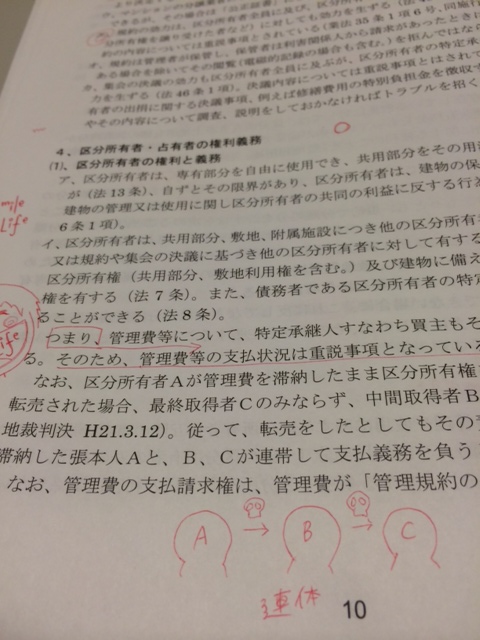 力を生ずる（法46条1項）。決議内容については重説事項とはされて
有者の出捐に関する決議事項、例えば修繕費用の特別負担金を徴収す
やその内容について調査、説明をしておかなければトラブルを招く
4、区分所有者・占有者の権利義務
(1)、区分所有者の権利と義務
ア、区分所有者は、専有部分を自由に使用でき、共用部分をその用
が（法13条）、自ずとその限界があり、区分所有者は、建物の保
建物の管理又は使用に関し区分所有者の共同の利益に反する行為
6条1項）。
イ、区分所有者は、共用部分、敷地、附属施設につき他の区分所有
又は規約や集会の決議に基づき他の区分所有者に対して有する
区分所有権（共用部分、敷地利用権を含む。）及び建物に備え
権を有する（法7条）。また、債務者である区分所有者の特定
ることができる（法8条）。
つまり、管理費等について、特定承継人すなわち買主もそ
る。そのため、管理費等の支払状況は重説事項となっている
なお、区分所有者Aが管理費を滞納したまま区分所有権
転売された場合、最終取得者Cのみならず、中間取得者B
地裁判決 H21.3.12）。従って、転売をしたとしてもその
滞納した張本人Aと、B、Cが連帯して支払義務を負う
なお、管理費の支払請求権は、管理費が「管理規約の
A → B → C
連体
10
life
life